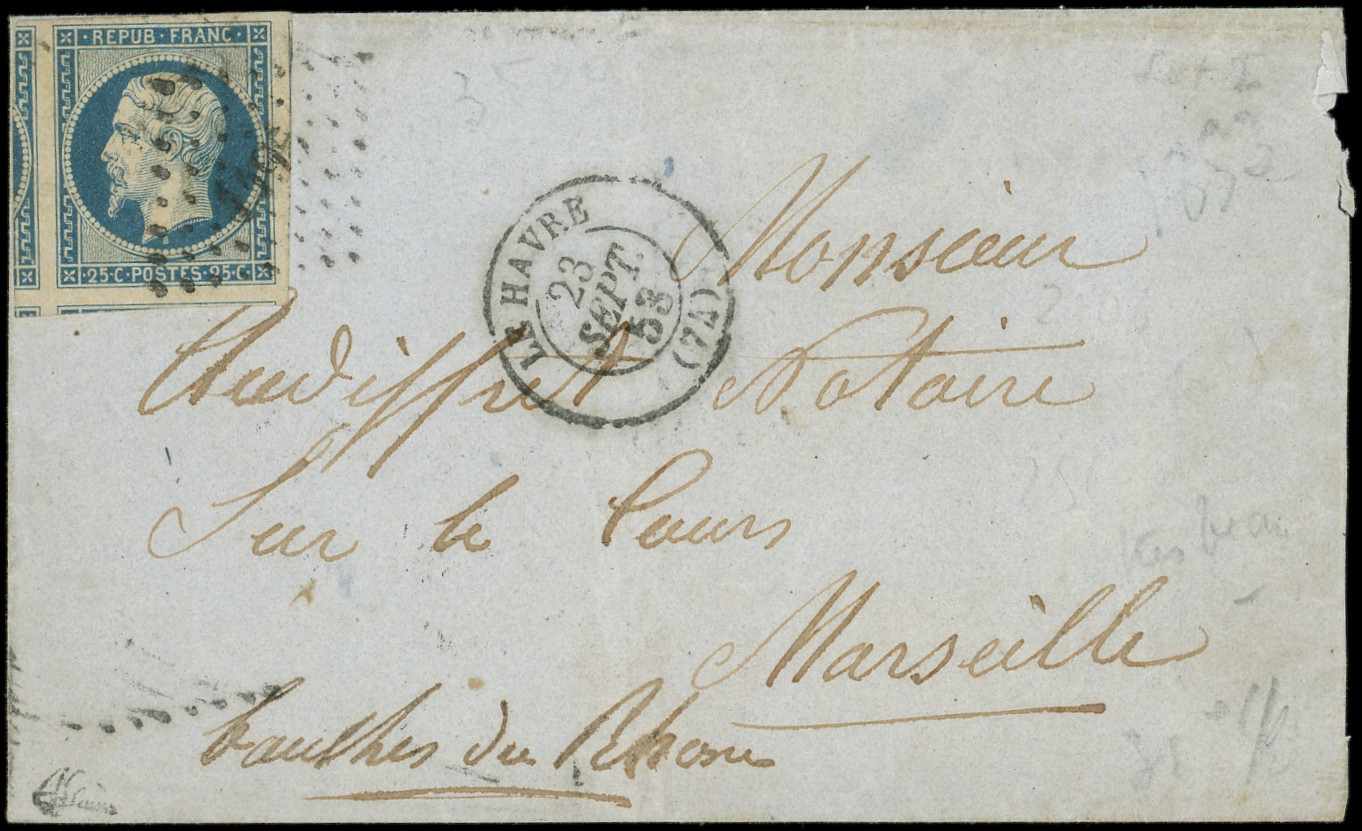 REPUB · FRANC
25·C·POSTES·25·C
LE HAVRE
23
SEPT.
53
(74)
Monsieur
Audiffret Notaire
Sur le Cours
Marseille
bouches du Rhone